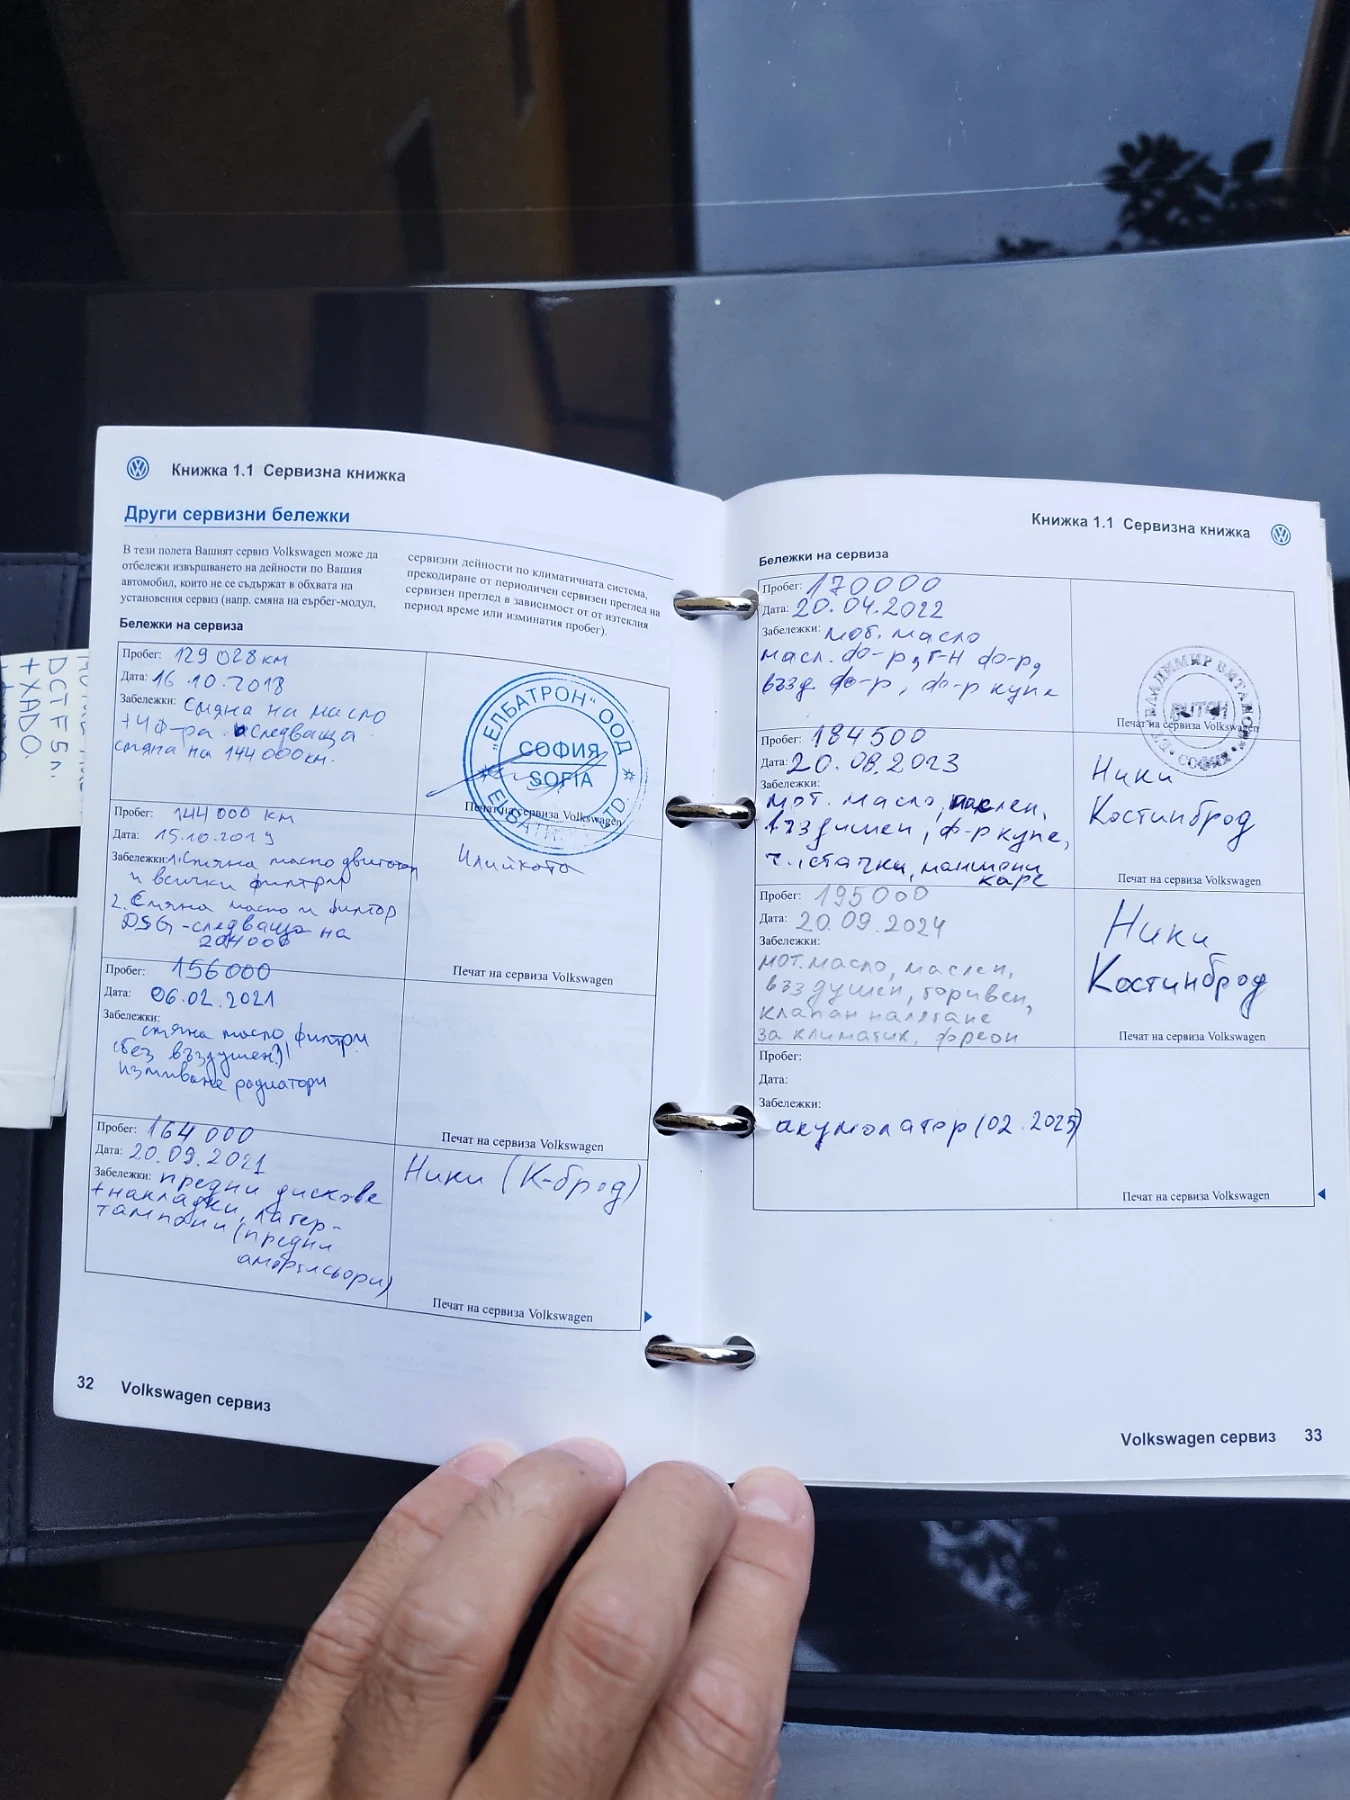 Книжка 1.1 Сервизна книжка
Други сервизни бележки
В тези полета Вашият сервиз Volkswagen може да
отбележи извършването на дейности по Вашия
автомобил, които не се съдържат в обхвата на
установения сервиз (напр. смяна на еърбег-модул,
сервизни дейности по климатичната система,
прекодиране от периодичен сервизен преглед на
сервизен преглед в зависимост от от изтеклия
период време или изминатия пробег).
Бележки на сервиза
Пробег: 129 028 км
Дата: 16.10.2018
Забележки: Смяна на масло
+ 4 ф-ра. следваща
смяна на 144 000 км.
"ЕЛБАТРОН" ООД
СОФИЯ
SOFIA
Печат на сервиза Volkswagen
Пробег: 144 000 км
Дата: 15.10.2019
Забележки: 1. Смяна масло двигател
и всички филтри
2. Смяна масло и филтър
DSG - следваща на
204000
Илийкота
Печат на сервиза Volkswagen
Пробег: 156000
Дата: 06.02.2021
Забележки:
смяна масло, филтри
(без въздушен!)
измиване радиатори
Печат на сервиза Volkswagen
Пробег: 164 000
Дата: 20.09.2021
Забележки: предни дискове
+ накладки, лагер-
тампони (предни
амортисьори)
Ники (К-брод)
Печат на сервиза Volkswagen
32 Volkswagen сервиз
Книжка 1.1 Сервизна книжка
Бележки на сервиза
Пробег: 170000
Дата: 20.04.2022
Забележки: мот. масло
масл. ф-р, г-н ф-р,
възд. ф-р, ф-р купе
СОФИЯ
Печат на сервиза Volkswagen
Пробег: 184500
Дата: 20.08.2023
Забележки:
мот. масло, маслен,
въздушен, ф-р купе,
каре
Ники
Костинброд
Печат на сервиза Volkswagen
Пробег: 195000
Дата: 20.09.2024
Забележки:
мот. масло, маслен,
въздушен, горивен,
клапан налягане
за климатик, фреон
Ники
Костинброд
Печат на сервиза Volkswagen
Пробег:
Дата:
Забележки:
акумолатор (02.2025)
Печат на сервиза Volkswagen
Volkswagen сервиз 33
DCTF 5л.
+XADO.